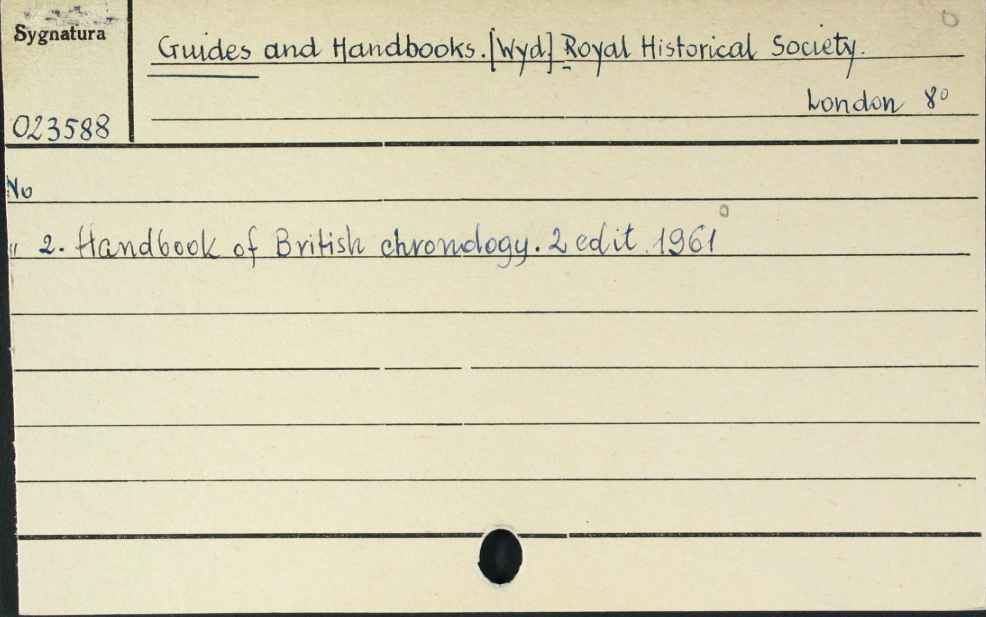 Sygnatura
Guides and Handbooks. [Wyd] Royal Historical Society.
London 8º
023588
No
" 2. Handbook of British chronology. 2 edit. 1961